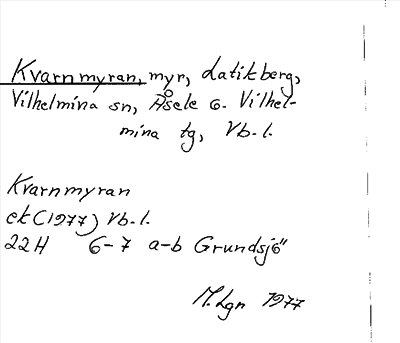 Kvarnmyran, myr, Latikberg,
Vilhelmina sn, Åsele o. Vilhel-
mina tg, Vb. l.
Kvarnmyran
ek (1977) Vb. l.
22H 6-7 a-b Grundsjö
M.Lgn 1977